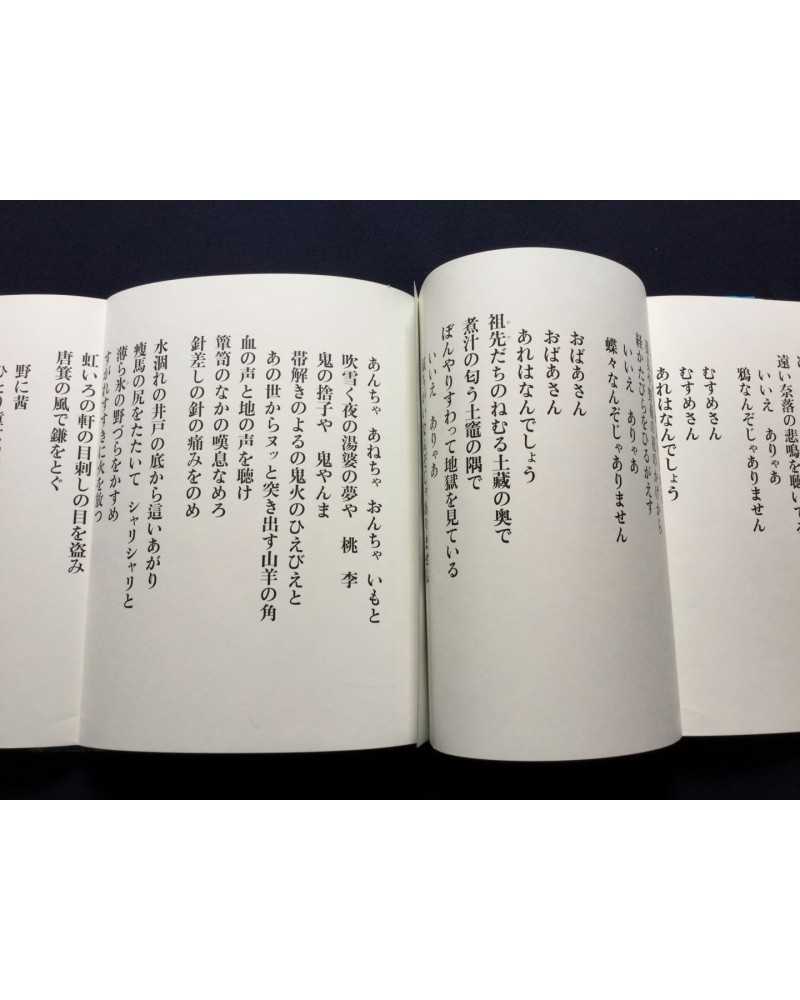 遠い奈落の悲鳴を聴いてる
いいえ　ありゃあ
鴉なんぞじゃありません
むすめさん
むすめさん
あれはなんでしょう
経かたびらをひるがえす
いいえ　ありゃあ
蝶々なんぞじゃありません
おばあさん
おばあさん
あれはなんでしょう
祖先だちのねむる土蔵の奥で
煮汁の匂う土竈の隅で
ぼんやりすわって地獄を見ている
いいえ　ありゃあ
あんちゃ　あねちゃ　おんちゃ　いもと
吹雪く夜の湯婆の夢や　桃　李
鬼の捨子や　鬼やんま
帯解きのよるの鬼火のひえびえと
あの世からヌッと突き出す山羊の角
血の声と地の声を聴け
箪笥のなかの嘆息なめろ
針差しの針の痛みをのめ
水涸れの井戸の底から這いあがり
痩馬の尻をたたいて　シャリシャリと
薄ら氷の野づらをかすめ
すがれすすきに火を放つ
虹いろの軒の目刺しの目を盗み
唐箕の風で鎌をとぐ
野に茜